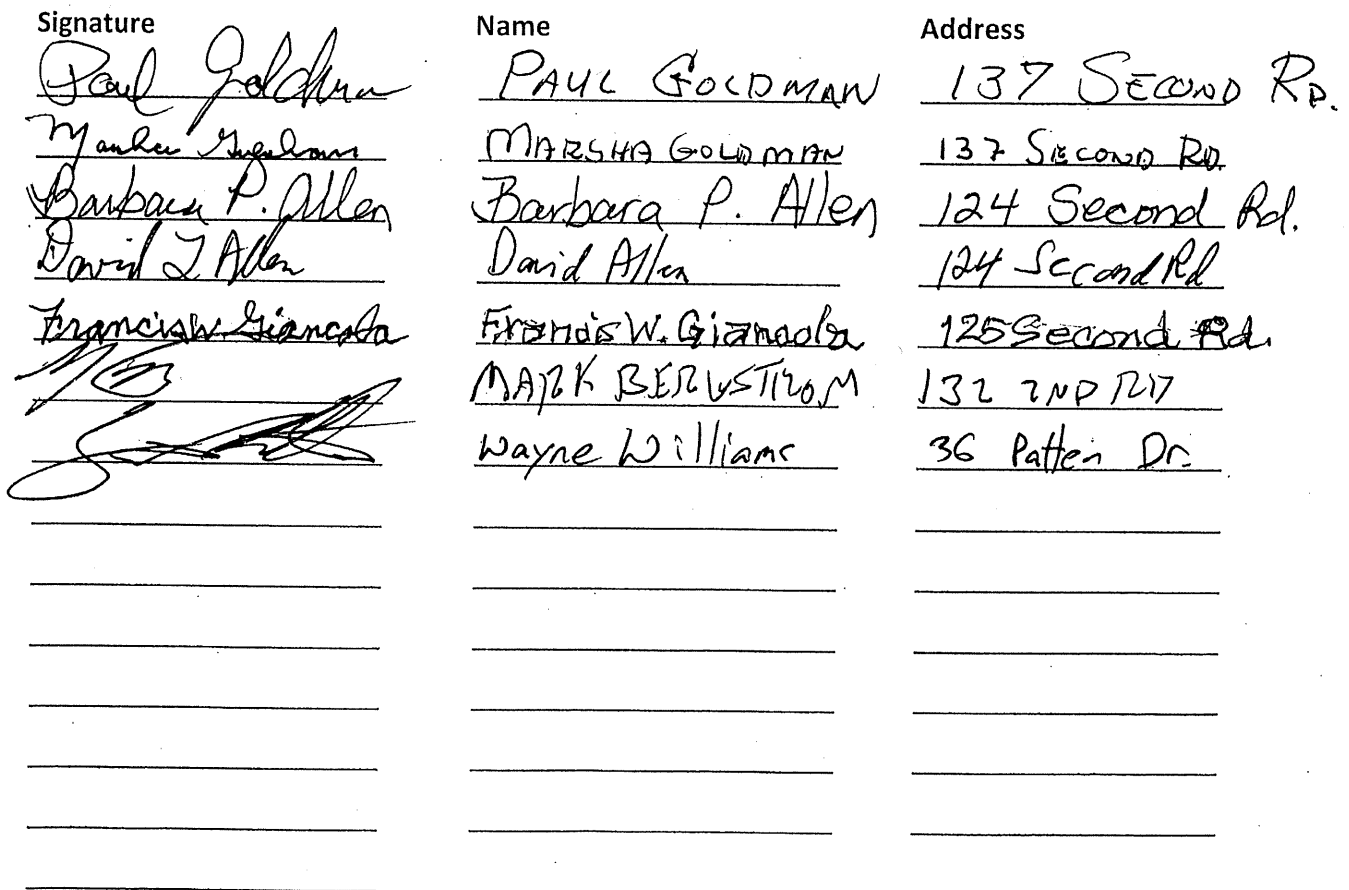 Signature Name Address
Paul Goldman PAUL GOLDMAN 137 SECOND RD.
MARSHA GOLDMAN 137 SECOND RD.
Barbara P. Allen Barbara P. Allen 124 Second Rd.
David L Allen David Allen 124 Second Rd
Francis W. Giancola Francis W. Giancola 125 Second Rd.
MARK BERGSTROM 132 2ND RD
Wayne Williams 36 Patten Dr.